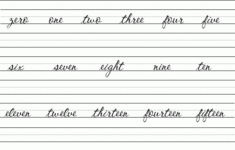 zero one two three four five
six seven eight nine ten
eleven twelve thirteen fourteen fifteen